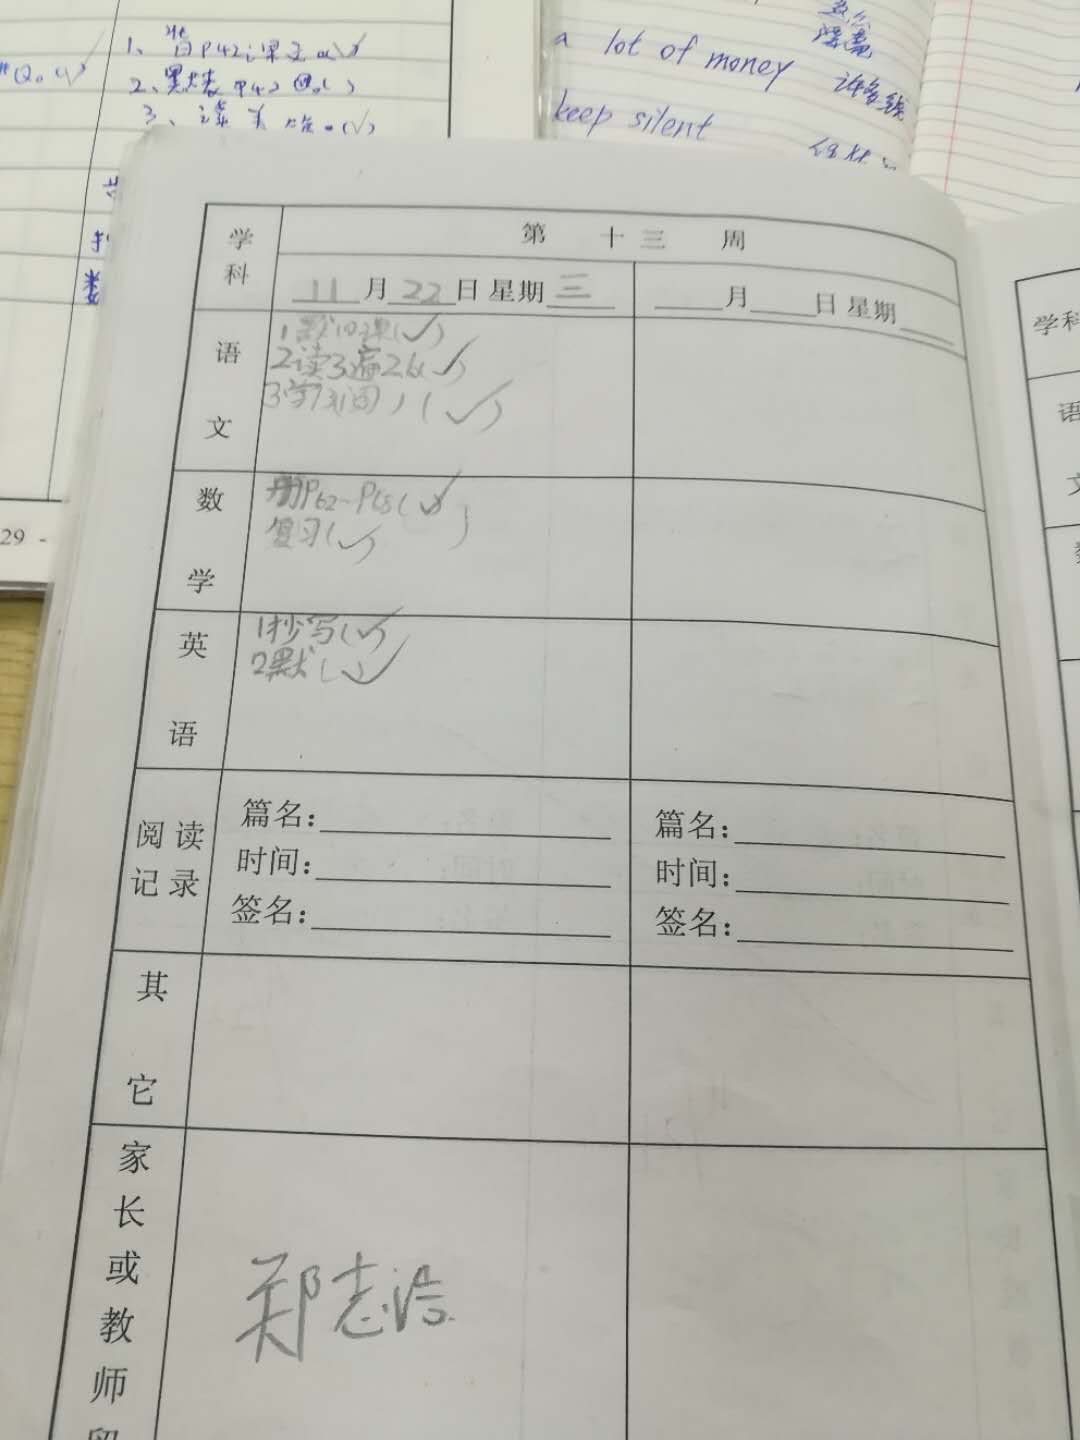 1、背P42课文a(✓)
2、默表P42
3、读
a lot of money 许多钱
keep silent
29 -
学科 第 十三 周
11月22日星期三 月 日星期
语文
1默10课(✓)
2读3遍26(✓)
3学习(词)(✓)
数学
册P62~P65(✓)
复习(✓)
英语
1抄写(✓)
2默(✓)
阅读记录
篇名： 篇名：
时间： 时间：
签名： 签名：
其它
家长或教师留
郑志浩
学科
语
文
数